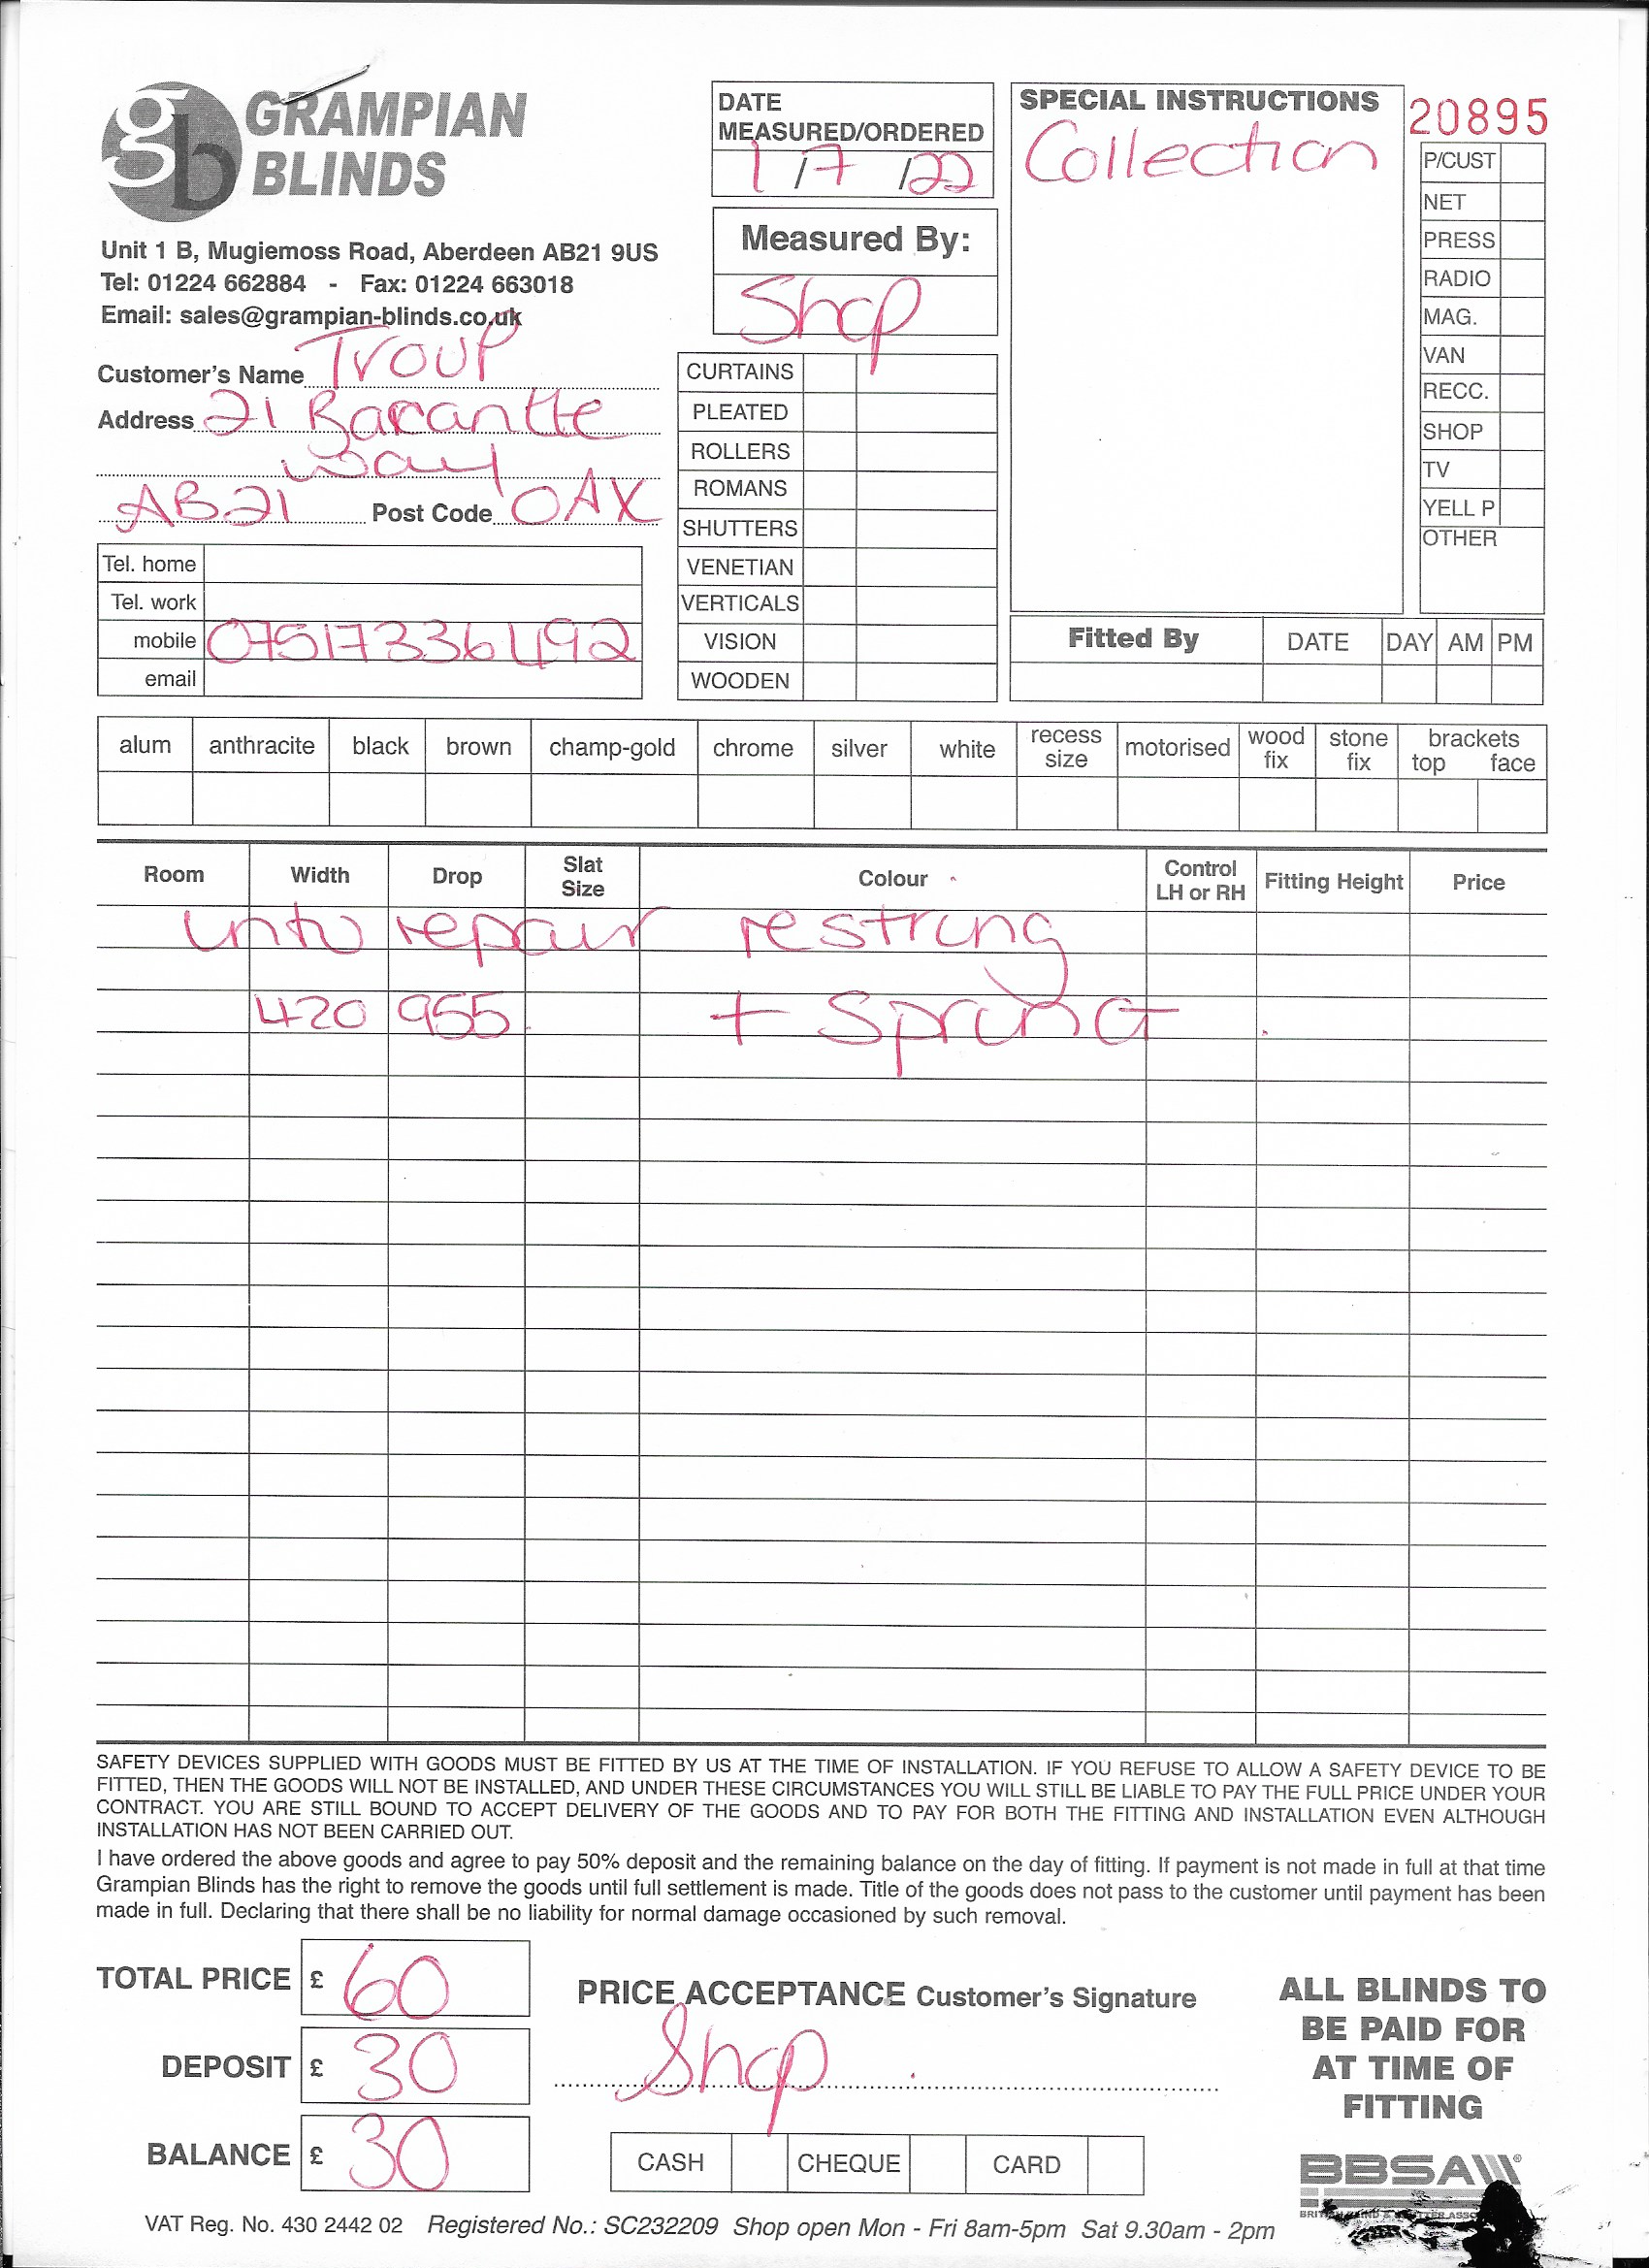 gb GRAMPIAN
BLINDS
Unit 1 B, Mugiemoss Road, Aberdeen AB21 9US
Tel: 01224 662884 - Fax: 01224 663018
Email: sales@grampian-blinds.co.uk
Customer's Name Troup
Address 21 Bacantte
Way
AB21 Post Code 0AX
Tel. home
Tel. work
mobile 07517336492
email
DATE
MEASURED/ORDERED
1/7/22
Measured By:
Shop
CURTAINS
PLEATED
ROLLERS
ROMANS
SHUTTERS
VENETIAN
VERTICALS
VISION
WOODEN
SPECIAL INSTRUCTIONS
Collection
20895
P/CUST
NET
PRESS
RADIO
MAG.
VAN
RECC.
SHOP
TV
YELL P
OTHER
Fitted By DATE DAY AM PM
alum anthracite black brown champ-gold chrome silver white recess size motorised wood fix stone fix brackets top face
Room Width Drop Slat Size Colour Control LH or RH Fitting Height Price
repair restring
420 955 + Spring
SAFETY DEVICES SUPPLIED WITH GOODS MUST BE FITTED BY US AT THE TIME OF INSTALLATION. IF YOU REFUSE TO ALLOW A SAFETY DEVICE TO BE
FITTED, THEN THE GOODS WILL NOT BE INSTALLED, AND UNDER THESE CIRCUMSTANCES YOU WILL STILL BE LIABLE TO PAY THE FULL PRICE UNDER YOUR
CONTRACT. YOU ARE STILL BOUND TO ACCEPT DELIVERY OF THE GOODS AND TO PAY FOR BOTH THE FITTING AND INSTALLATION EVEN ALTHOUGH
INSTALLATION HAS NOT BEEN CARRIED OUT.
I have ordered the above goods and agree to pay 50% deposit and the remaining balance on the day of fitting. If payment is not made in full at that time
Grampian Blinds has the right to remove the goods until full settlement is made. Title of the goods does not pass to the customer until payment has been
made in full. Declaring that there shall be no liability for normal damage occasioned by such removal.
TOTAL PRICE £ 60
DEPOSIT £ 30
BALANCE £ 30
PRICE ACCEPTANCE Customer's Signature
Shop
CASH CHEQUE CARD
ALL BLINDS TO
BE PAID FOR
AT TIME OF
FITTING
BBSA
VAT Reg. No. 430 2442 02 Registered No.: SC232209 Shop open Mon - Fri 8am-5pm Sat 9.30am - 2pm